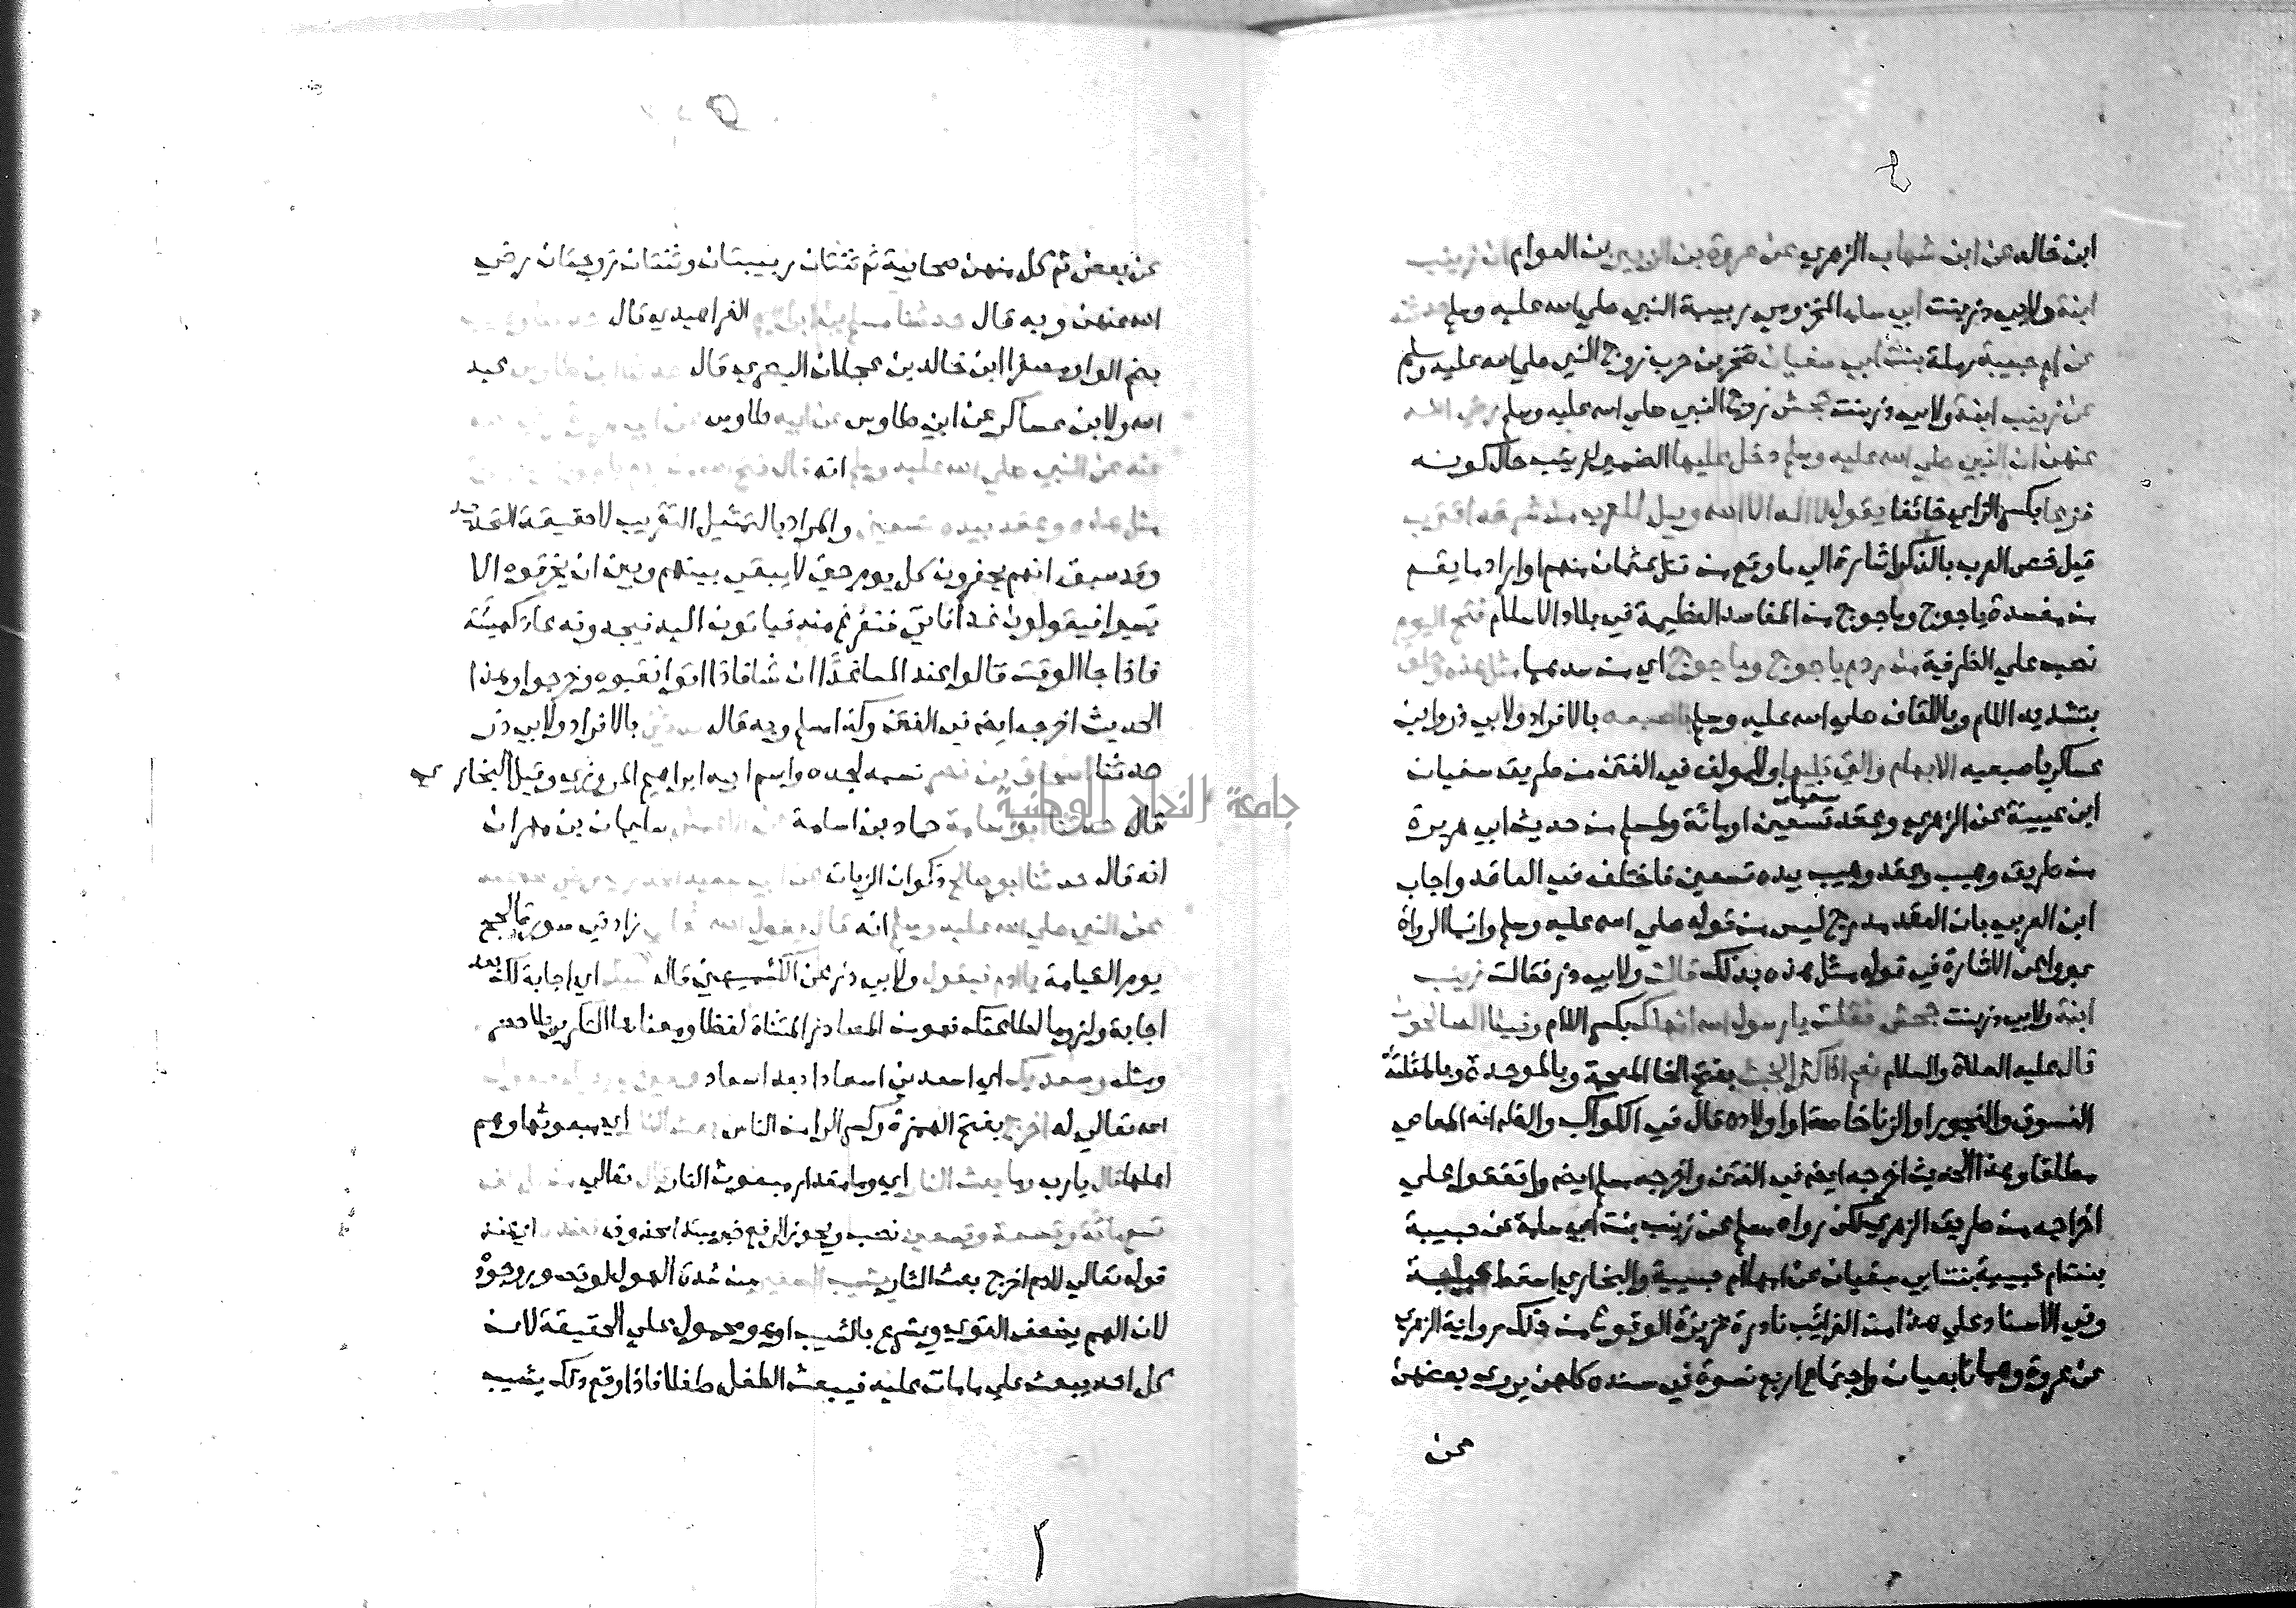 ابن خالد عن ابن شهاب الزهري عن عروة بن الزبير بن العوام ان زينب
ابنة ولابي ذر بنت ابي سلمه المخزومي ربيبة النبي صلي الله عليه وسلم حدثته
عن ام حبيبة رملة بنت ابي سفيان صخر بن حرب زوج النبي صلي الله عليه وسلم
عن زينب ابنة ولابي ذر بنت جحش زوج النبي صلي الله عليه وسلم رضي الله
عنهن ان النبي صلي الله عليه وسلم دخل عليها الضمير لزينب حال كونه
فزعا بكسر الزاي خائفا يقول لا اله الا الله ويل للعرب من شر قد اقترب
قيل خص العرب بالذكر اشارة الي ما وقع من قتل عثمان منهم او اراد ما يقع
من مفسدة ياجوج وماجوج من المفاسد العظيمة في بلاد الاسلام فتح اليوم
نصب علي الظرفية من ردم ياجوج وماجوج اي من سدهما مثل هذه وحلق
بتشديد اللام وبالقاف صلي الله عليه وسلم باصبعه بالافراد ولابي ذر وابن
عساكر باصبعيه الابهام والتي تليها وللمولف في الفتن من طريق سفيان
ابن عيينة عن الزهري وعقد سفيان تسعين او مائة ولمسلم من حديث ابي هريرة
من طريق وهيب وعقد وهيب بيده تسعين فاختلف في العاقد واجاب
ابن العربي بان العقد مدرج ليس من قوله صلي الله عليه وسلم وانما الرواة
عبروا عن الاشارة في قوله مثل هذه بذلك قالت ولابي ذر فقالت زينب
ابنة ولابي ذر بنت جحش فقلت يا رسول الله انهلك بكسر اللام وفينا الصالحون
قال عليه الصلاة والسلام نعم اذا كثر الخبث بفتح الخا المعجمة وبالموحدة وبالمثلثة
الفسوق والفجور او الزنا خاصة او اولاده قال في الكواكب والظاهر انه المعاصي
مطلقا وهذا الحديث اخرجه ايضه في الفتن واخرجه مسلم ايضه واتفقوا علي
اخراجه من طريق الزهري لكن رواه مسلم عن زينب بنت ابي سلمة عن حبيبة
بنت ام حبيبة بنت ابي سفيان عن امها ام حبيبة والبخاري اسقط حبيبة
وفي الاسناد علي هذا من الغرائب نادرة عزيزة الوقوع من ذلك رواية الزهري
عن عروة وهما تابعيان واجتماع اربع نسوة في سنده كلهن يروي بعضهن
عن
عن بعض ثم كل منهن صحابية ثم ثنتان ربيبتان وثنتان زوجتان رضي
الله عنهن وبه قال حدثنا مسلم بن ابراهيم الفراهيدي قال حدثنا وهيب
بضم الواو مصغرا ابن خالد بن عجلان البصري قال حدثنا ابن طاوس عبد
الله ولابن عساكر عن ابن طاوس عن ابيه طاوس عن ابي هريرة رضي الله
عنه عن النبي صلي الله عليه وسلم انه قال فتح الله من ردم ياجوج وماجوج
مثل هذه وعقد بيده تسعين والمراد بالتمثيل التقريب لا حقيقة التحديد
وقد سبق انهم يحفرون كل يوم حتي لا يبقي بينهم وبين ان يخرقوه الا
يسيرا فيقولون غدا ناتي فنفرغ منه فياتون اليه فيجدونه عاد كهيئته
فاذا جا الوقت قالوا عند المسا غدًا ان شا فاذا اتوا نقبوه وخرجوا وهذا
الحديث اخرجه ايضه في الفتن وكذا مسلم وبه قال حدثني بالافراد ولابي ذر
حدثنا اسحاق بن نصر نسبه لجده واسم ابيه ابراهيم المروزي وقيل البخاري
قال حدثنا ابو اسامة حماد بن اسامة عن الاعمش سليمان بن مهران
انه قال حدثنا ابو صالح ذكوان الزيات عن ابي سعيد الخدري رضي الله عنه
عن النبي صلي الله عليه وسلم انه قال يقول الله تعالي زاد في سورة الحج
يوم القيامة يا ادم فيقول ولابي ذر عن الكشميهني قال لبيك اي اجابة لك بعد
اجابة ولزوما لطاعتك فهو من المصادر المثناة لفظا ومعناها التكرير بلا حصر
ومثله وسعديك اي اسعدني اسعادا بعد اسعاد
الله تعالي له اخرج بفتح الهمزة وكسر الرا من الناس بعث النار اي مبعوثها وهم
اهلها قال يا رب وما بعث النار اي وما مقدار مبعوث النار قال تعالي من كل الف
تسعمائة وتسعة وتسعين نصب ويجوز الرفع خبر مبتدا محذوف فعنده اي عند
قوله تعالي لادم اخرج بعث النار يشيب الصغير من شدة الهول لو تصور وجوده
لان الهم يضعف القوي ويسرع بالشيب او هو محمول علي الحقيقة لان
كل احد يبعث علي ما مات عليه فيبعث الطفل طفلا فاذا وقع ذلك يشيب
جامعة النجاح الوطنية